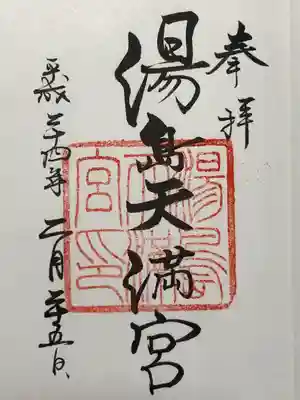 奉拝
湯島天満宮
平成二十四年 二月二十五日
湯島
天満
宮印